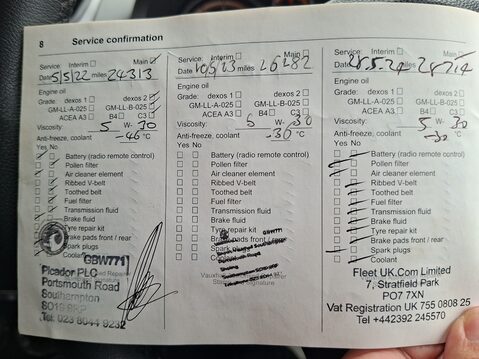 8 Service confirmation
Service: Interim Main
Date 5/5/22 miles 24313
Engine oil
Grade: dexos 1 dexos 2
GM-LL-A-025 GM-LL-B-025
ACEA A3 B4 C3
Viscosity: 5 W- 30
Anti-freeze, coolant -46 °C
Yes No
Battery (radio remote control)
Pollen filter
Air cleaner element
Ribbed V-belt
Toothed belt
Fuel filter
Transmission fluid
Brake fluid
Tyre repair kit
Brake pads front / rear
Spark plugs
Coolant
GBW771
Picador PLC
Portsmouth Road
Southampton
Tel: 023 8044 9232
Service: Interim Main
Date miles 26282
Engine oil
Grade: dexos 1 dexos 2
GM-LL-A-025 GM-LL-B-025
ACEA A3 B4 C3
Viscosity: 5 W- 30
Anti-freeze, coolant -30 °C
Yes No
Battery (radio remote control)
Pollen filter
Air cleaner element
Ribbed V-belt
Toothed belt
Fuel filter
Transmission fluid
Brake fluid
Tyre repair kit
Brake pads front / rear
Spark plugs
Coolant
GBW771
Service: Interim Main
Date 28.5.24 miles
Engine oil
Grade: dexos 1 dexos 2
GM-LL-A-025 GM-LL-B-025
ACEA A3 B4 C3
Viscosity: 5 W- 30
Anti-freeze, coolant -32 °C
Yes No
Battery (radio remote control)
Pollen filter
Air cleaner element
Ribbed V-belt
Toothed belt
Fuel filter
Transmission fluid
Brake fluid
Tyre repair kit
Brake pads front / rear
Spark plugs
Coolant
Fleet UK.Com Limited
7, Stratfield Park
PO7 7XN
Vat Registration UK 755 0808 25
Tel +442392 245570